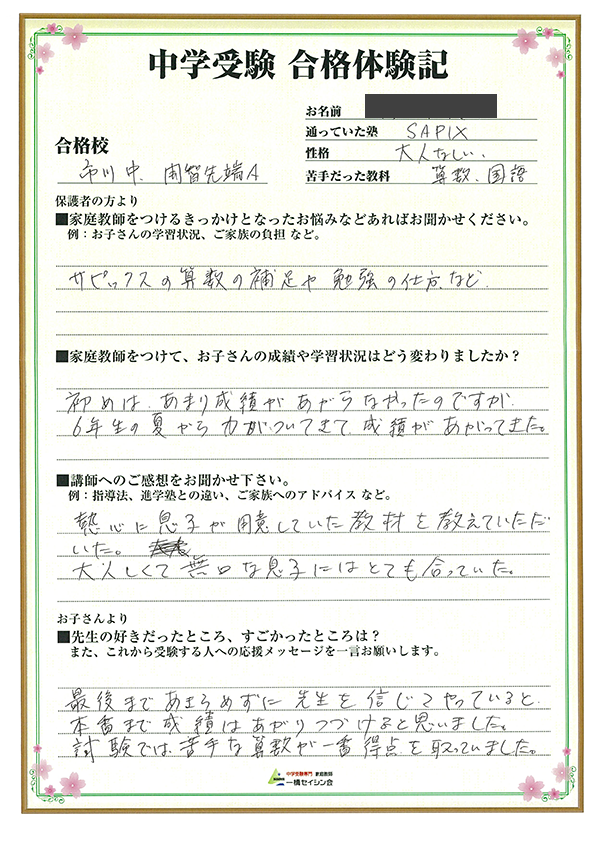 中学受験 合格体験記
お名前
通っていた塾 SAPIX
合格校
性格 大人なしい、
市川中. 開智先端A
苦手だった教科 算数、国語
保護者の方より
■家庭教師をつけるきっかけとなったお悩みなどあればお聞かせください。
例：お子さんの学習状況、ご家族の負担 など。
サピックスの算数の補足や 勉強の仕方など.
■家庭教師をつけて、お子さんの成績や学習状況はどう変わりましたか？
初めは、あまり成績があがらなかったのですが.
6年生の夏から力がついてきて成績があがってきた。
■講師へのご感想をお聞かせ下さい。
例：指導法、進学塾との違い、ご家族へのアドバイス など。
熱心に息子が用意していた教材を教えていただ
いた。
大人しくて無口な息子にはとても合っていた。
お子さんより
■先生の好きだったところ、すごかったところは？
また、これから受験する人への応援メッセージを一言お願いします。
最後まであきらめずに先生を信じてやっていると.
本番まで成績はあがりつづけると思いました。
試験では苦手な算数が一番得点を取っていました。
中学受験専門 家庭教師
一橋セイシン会